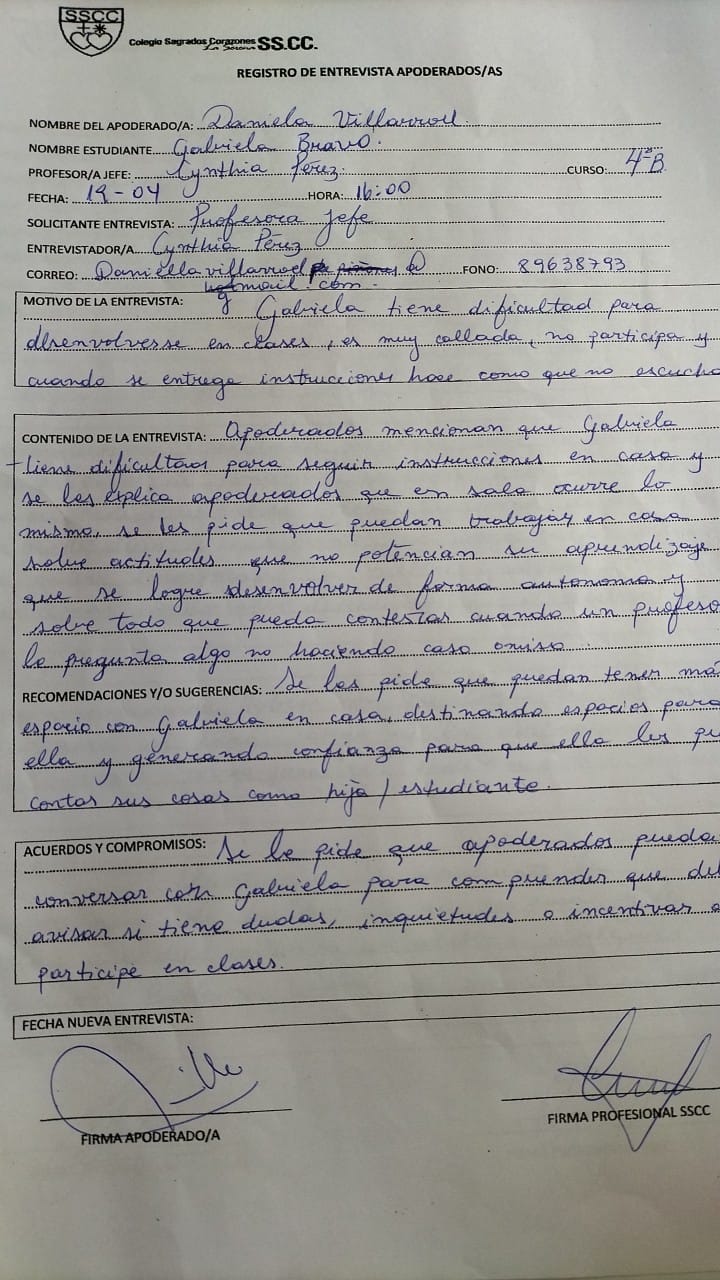 SSCC
Colegio Sagrados Corazones La Serena SS.CC.
REGISTRO DE ENTREVISTA APODERADOS/AS
NOMBRE DEL APODERADO/A: Daniela Villarroel.
NOMBRE ESTUDIANTE Gabriela Bravo.
PROFESOR/A JEFE: Cynthia Pérez. CURSO: 4ºB
FECHA: 19-04 HORA: 16:00
SOLICITANTE ENTREVISTA: Profesora Jefe
ENTREVISTADOR/A Cynthia Pérez
CORREO: Daniellavillarroel @ FONO: 89638793
hotmail.com.
MOTIVO DE LA ENTREVISTA: Gabriela tiene dificultad para
desenvolverse en clases, es muy callada, no participa y
cuando se entrega instrucciones hace como que no escucha
CONTENIDO DE LA ENTREVISTA: Apoderados mencionan que Gabriela
tiene dificultad para seguir instrucciones en casa y
se les explica apoderados que en sala ocurre lo
mismo, se les pide que puedan trabajar en casa
sobre actitudes que no potencian su aprendizaje
que se logre desenvolver de forma autónoma y
sobre todo que pueda contestar cuando un profeso
le pregunta algo no haciendo caso omiso.
RECOMENDACIONES Y/O SUGERENCIAS: Se les pide que puedan tener má
espacio con Gabriela en casa, destinando espacios para
ella y generando confianza para que ella les pu
contar sus cosas como hija / estudiante.
ACUERDOS Y COMPROMISOS: Se le pide que apoderados pueda
conversar con Gabriela para comprender que de
avisar si tiene dudas, inquietudes o incentivar a
participe en clases.
FECHA NUEVA ENTREVISTA:
FIRMA APODERADO/A
FIRMA PROFESIONAL SSCC